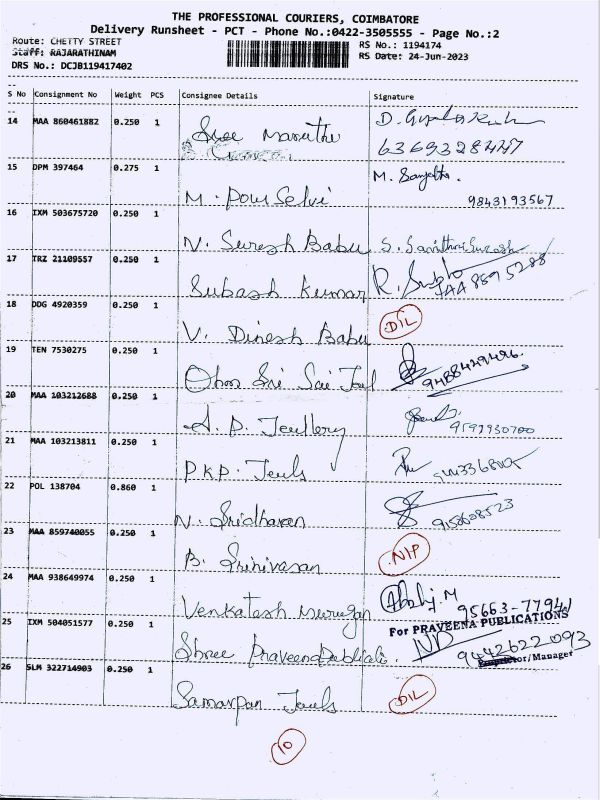 THE PROFESSIONAL COURIERS, COIMBATORE
Delivery Runsheet - PCT - Phone No.:0422-3505555 - Page No.:2
Route: CHETTY STREET
RS No.: 1194174
Staff: RAJARATHINAM
RS Date: 24-Jun-2023
DRS No.: DCJB119417402
S No Consignment No Weight PCS Consignee Details Signature
14 MAA 860461882 0.250 1
Sree Maruthi
6369328447
15 DPM 397464 0.275 1
M. Sangetha.
M. Pour Selvi 9843193567
16 IXM 503675720 0.250 1
N. Suresh Babu S. Savithri Suresh
17 TRZ 21109557 0.250 1
Subash Kumar R.
18 DDG 4920359 0.250 1
V. Dinesh Babu DIL
19 TEN 7530275 0.250 1
Ohm Sri Sai Jewl
20 MAA 103212688 0.250 1
A. D. Jewllery 9597930700
21 MAA 103213811 0.250 1
P.K.P. Jewls
22 POL 138704 0.860 1
N. Sridharan
23 MAA 859740055 0.250 1
B. Srinivasan NIP
24 MAA 938649974 0.250 1
Venkatesh Murugan 95663-77941
25 IXM 504051577 0.250 1
For PRAVEENA PUBLICATIONS
Shree Praveena Publiati. 9442622093
Proprietor/Manager
26 SLM 322714903 0.250 1
Samarpan Jewls DIL
10